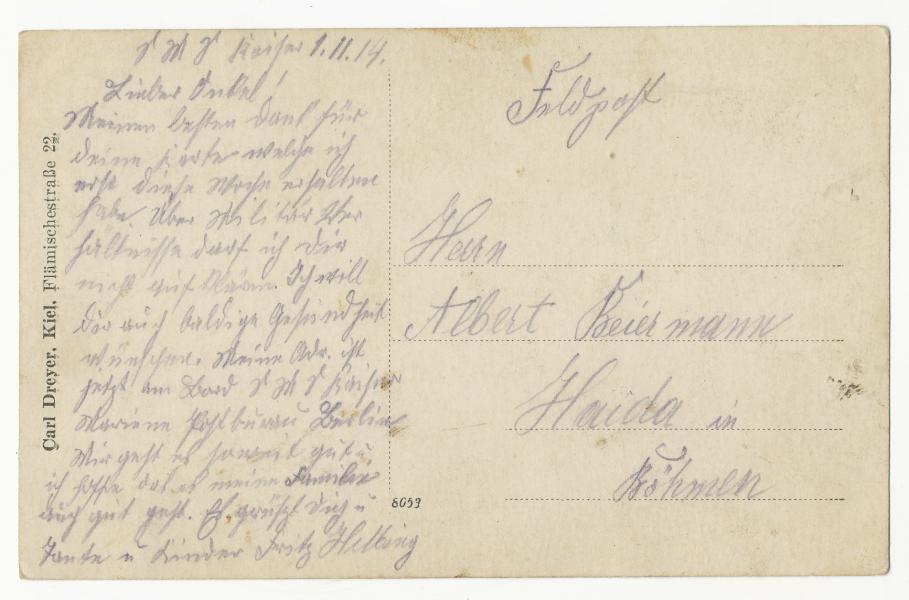 S M S Kaiser 1.11.14.
Lieber Onkel!
Meinen besten Dank für
deine Karte welche ich
erst diese Woche erhalten
habe Über Militär Ver
hältnisse darf ich dir
nicht auf klären. Ich will
dir auch baldige Gesundheit
wünschen. Meine Adr. ist
jetzt am Bord S M S Kaiser
Mariene Postbureau Berlin
Mir geht es soweit gut u
ich hoffe das es meine Familie
auch gut geht. Es grüßt dich u
Tante u Kinder Fritz Helbing
Carl Dreyer, Kiel, Flämischestraße 22.
8053
Feldpost
Herrn
Albert Beiermann
Haida in
Böhmen